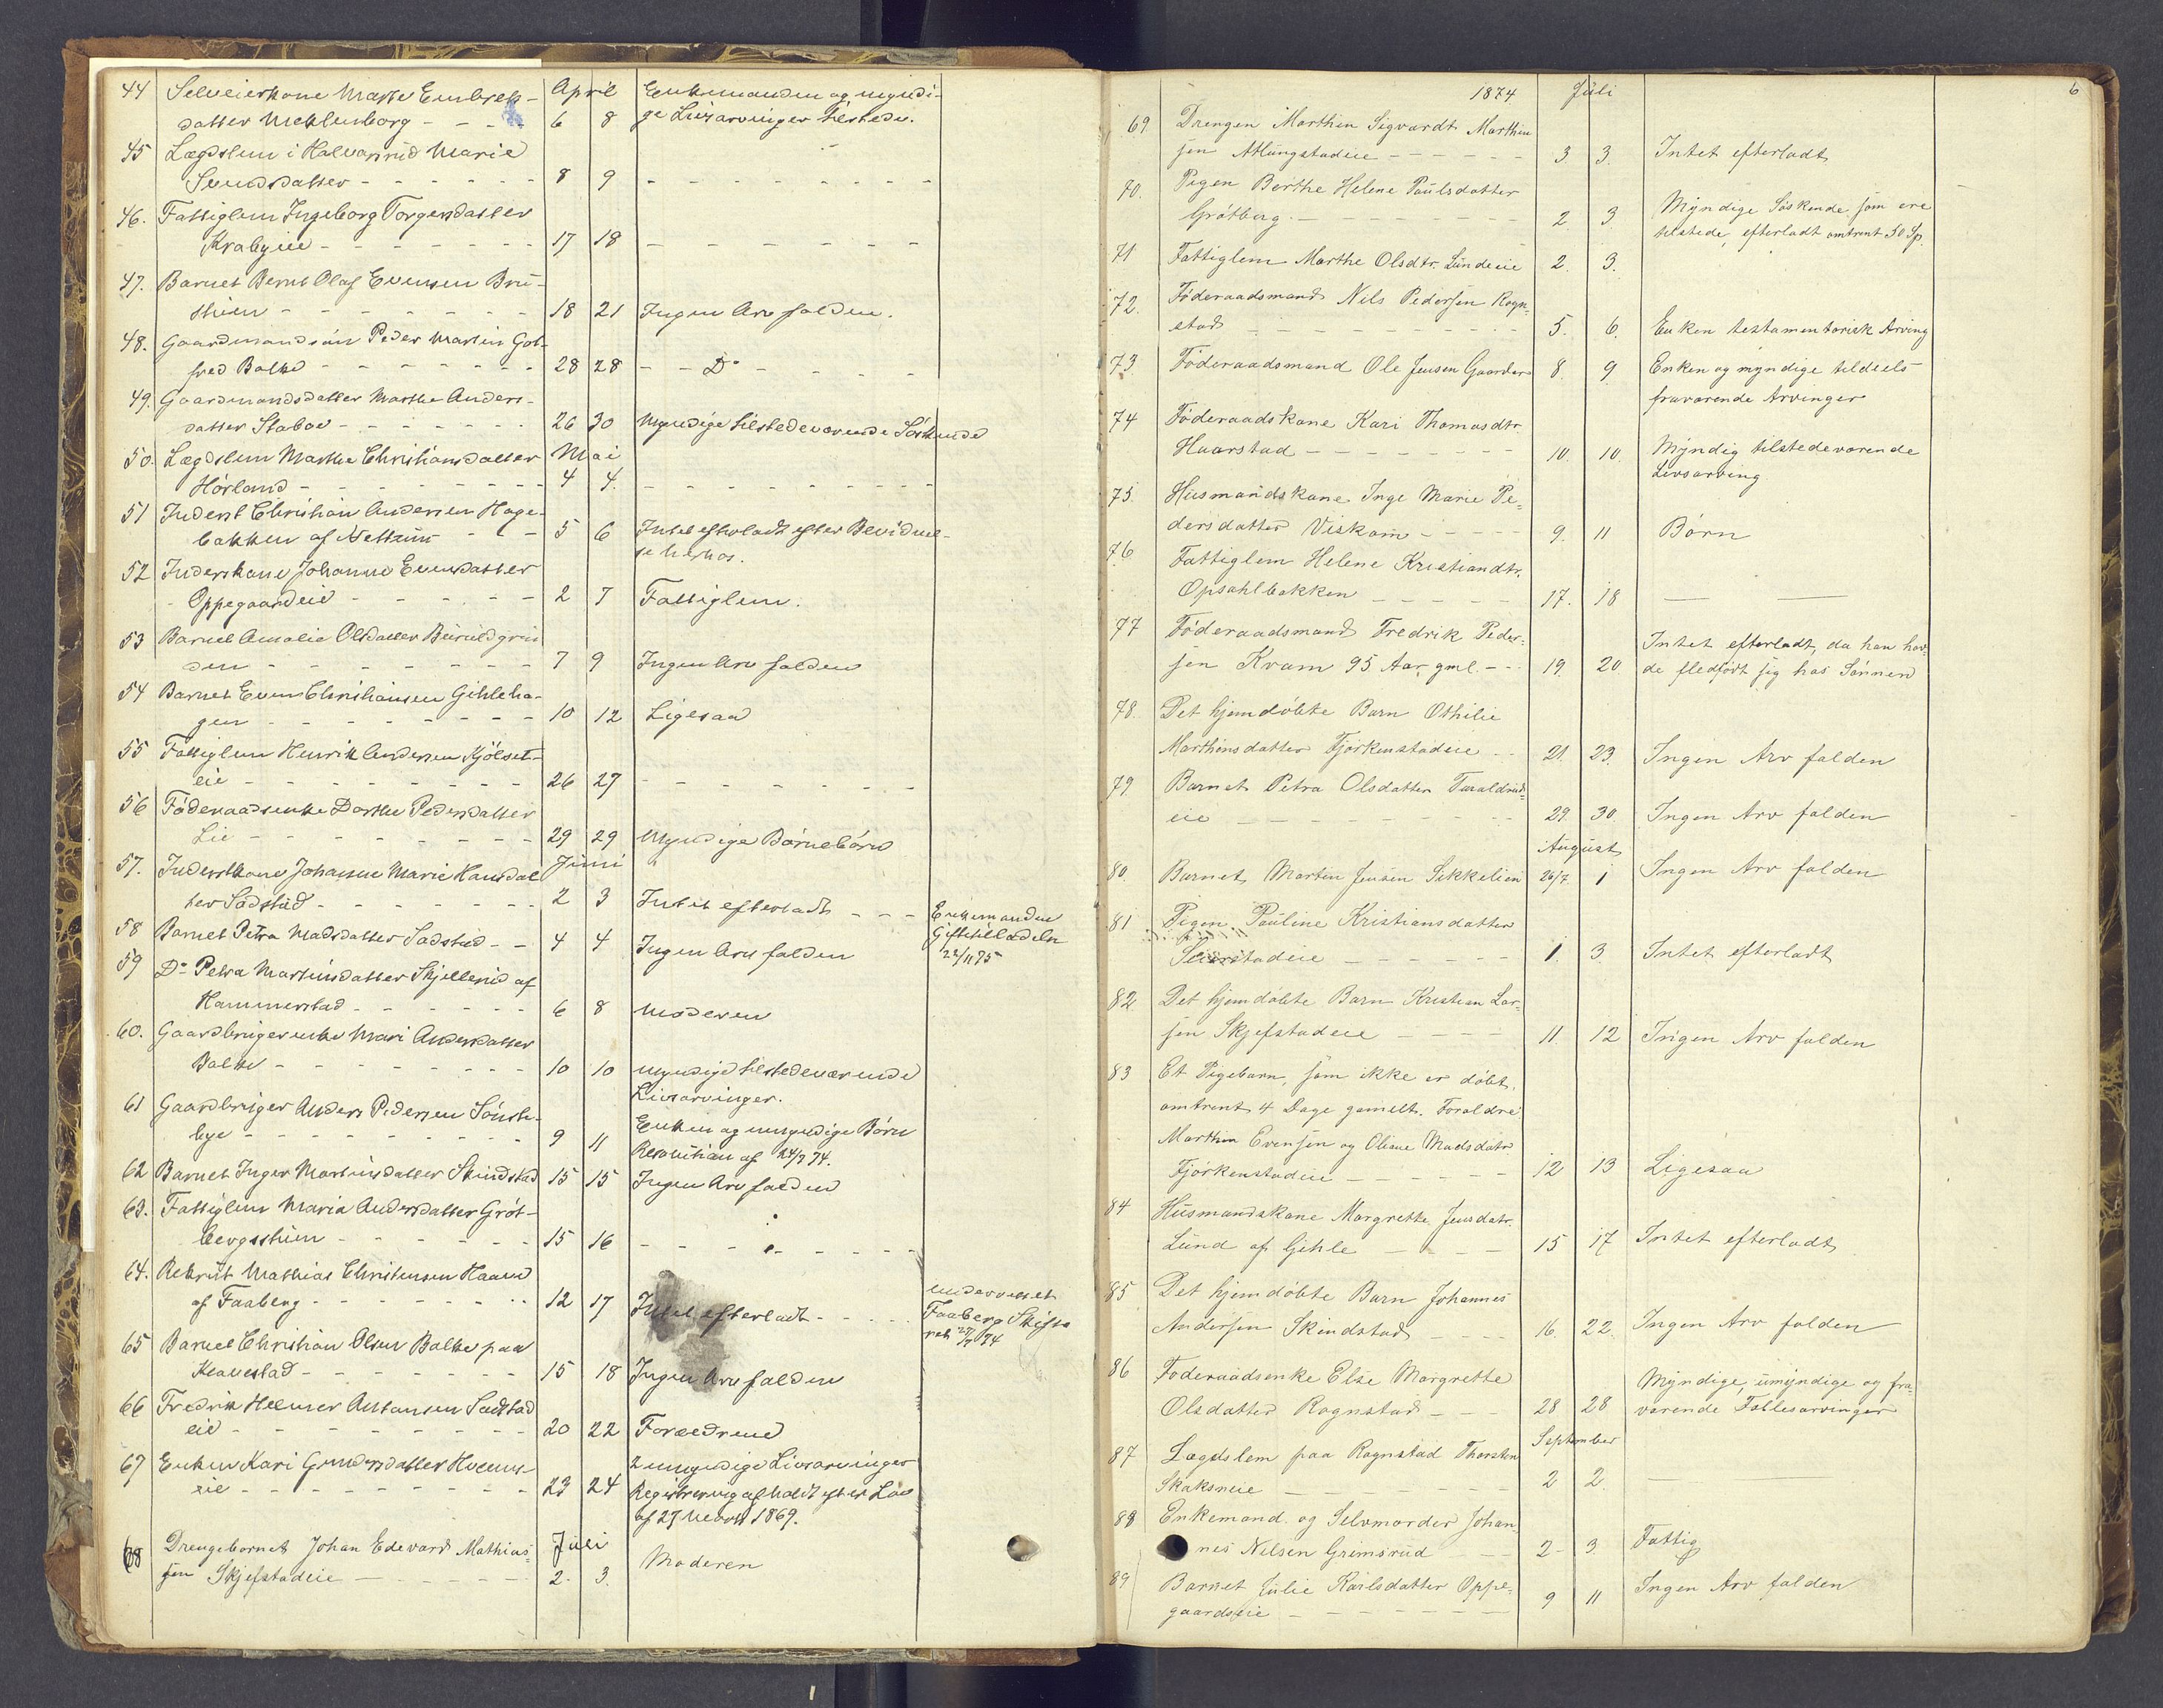 44 Selveierkone Marthe Embret- April Enkemanden og myndi-
datter Meklenborg - - - 6 8 ge Livsarvinger tilstede.
45 Lægdslem i Halvorsrud Marie
Svendsdatter - - - - - - 8 9 - - - - - - - -
46. Fattiglem Ingeborg Torgersdatter
Krabyeie - - - - - - - 17 18 - - - - - -
47. Barnet Bernt Olaf Evensen Bru-
- - - - - - - 18 21 Ingen Arv falden.
48. Gaardmandssøn Peder Martin Got-
fred Balke - - - - - - - 28 28 - - Do - - - -
49. Gaardmandsdatter Marthe Anders-
datter Staboe - - - - - - 26 30 Myndige tilstedeværende Søskende
50. Lægdslem Marthe Christiansdatter Mai
Hørland - - - - - - - - 4 4. - - - - - - - -
51 Inderst Christian Andersen Hage-
bakken af - - - 5 6 Intet efterladt efter Bevidnel-
se herhos.
52 Inderstkone Johanne Evensdatter
Oppegaardeie - - - - - 2 7 Fattiglem.
53 Barnet Amalie Olsdatter
- - - - - - - - 7 9 Ingen Arv falden
54 Barnet Even Christiansen Gihleha-
gen - - - - - - - - - 10 12 Ligesaa
55 Fattiglem Henrik Andersen Kjølset-
eie - - - - - - - - - 26 27 - - - - - - -
56 Føderaadsenke Dorthe Pedersdatter
Lie - - - - - - - - - 29 29 Myndige Børnebørn
57. Inderstkone Johanne Marie Hansdat Juni
ter Sodstud - - - - - - - 2 3 Intet efterladt - - - Enkemanden
58 Barnet Petra Madsdatter Sodstud - - 4 4 Ingen Arv falden Giftetilladelse
22/11 75
59 Do Petra Martinsdatter Skjellerud af
Hammerstad - - - - - - 6 8 Moderen
60. Gaardbrugerenke Mari Andersdatter
Balke - - - - - - - - 10 10 myndige tilstedeværende
Livsarvinger.
61 Gaardbruger Anders Pedersen Sønste-
bye - - - - - - - - - 9 11 Enken og umyndige Børn
Resolution af 24/7 74.
62 Barnet Inger Martinsdatter Skindstad 15 15 Ingen Arv falden
63. Fattiglem Maria Andersdatter Grøt-
- - - - - - 15 16 - - - - - - -
64. Rekrut Mathias Christensen Haave
af Faaberg - - - - - - - 12 17 Intet efterladt - - - - - underrettet
Faaberg Skifte
ret 27/7 74
65 Barnet Christian Olsen Balke paa
- - - - - - - 15 18 Ingen Arv falden
66 Fredrik Helmer Antonsen
eie - - - - - - - - - 20 22 Forældrene
67 Enken Kari Gundersdatter
eie - - - - - - - - - 23 24 2 umyndige Livsarvinger
Registrering afholdt efter Lov
af 27 Marts 1869.
68 Drengebarnet Johan Edevard Mathias- Juli
sen Skjefstadeie - - - - - 2. 3. Moderen
1874 Juli 6
69. Drengen Marthin Sigvardt Marthin
sen Alfungstadeie - - - - - - 3 3. Intet efterladt
70. Pigen Berthe Helene Paulsdatter
Grøtberg. - - - - - - - - 2. 3. Myndige Søskende som ere
tilstede, efterladt omtrent 50 Sp.
71 Fattiglem Marthe Olsdtr. Lundeie 2. 3.
72. Føderaadsmand Nils Pedersen Rogn-
stad - - - - - - - - - - 5. 6. Enken testamentarisk Arving
73 Føderaadsmand Ole Jensen Gaarder 8. 9 Enken og myndige tildeels
fraværende Arvinger
74 Føderaadskone Kari Thomasdtr.
Haarstad - - - - - - - - 10. 10. Myndig tilstedeværende
Livsarving
75. Husmandskone Inge Marie Pe-
dersdatter Viskom - - - - - 9. 11 Børn
76 Fattiglem Helene Kristiandtr.
Opsahlbakken - - - - - 17. 18 — —
77 Føderaadsmand Fredrik Peder-
sen Kvam 95 Aar gml. - - - 19. 20 Intet efterladt, da han hav-
de fledført sig hos Sønnen
78. Det hjemdøbte Barn Othilie
Marthinsdatter Fjørkenstadeie - - 21. 23. Ingen Arv falden
79 Barnet Petra Olsdatter Taraldrud-
eie - - - - - - - - - - 29. 30. Ingen Arv falden
August
80. Barnet Martin Jensen Sikkelien 26/7. 1 Ingen Arv falden
81 Pigen Pauline Kristiansdatter
- - - - - - 1. 3. Intet efterladt
82 Det hjemdøbte Barn Kristian Lar-
sen Skjefstadeie - - - - 11. 12 Ingen Arv falden
83 Et Pigebarn, som ikke er døbt,
omtrent 4 Dage gamelt. Forældre
Marthin Evensen og Oliane Madsdatr
Fjørkenstadeie - - - - - 12 13 Ligesaa
84 Husmandskone Margrethe Jensdatr.
Lund af Gihle - - - - 15 17 Intet efterladt
85 Det hjemdøbte Barn Johannes
Andersen Skindstad - - - - 16. 22. Ingen Arv falden
86 Føderaadsenke Else Margrethe
Olsdatter Rognstad - - - 28 28 Myndige, umyndige og fra-
værende Fællesarvinger
September
87 Lægdslem paa Rognstad Thorsten
Skaksneie - - - - - - - - 2 2. —
88 Enkemand og Selvmorder Johan-
nes Nilsen Grimsrud - - - 2- 3. Fattig
89 Barnet Julie Karlsdatter Oppe-
gaardseie - - - - - - - 9 11 Ingen Arv falden